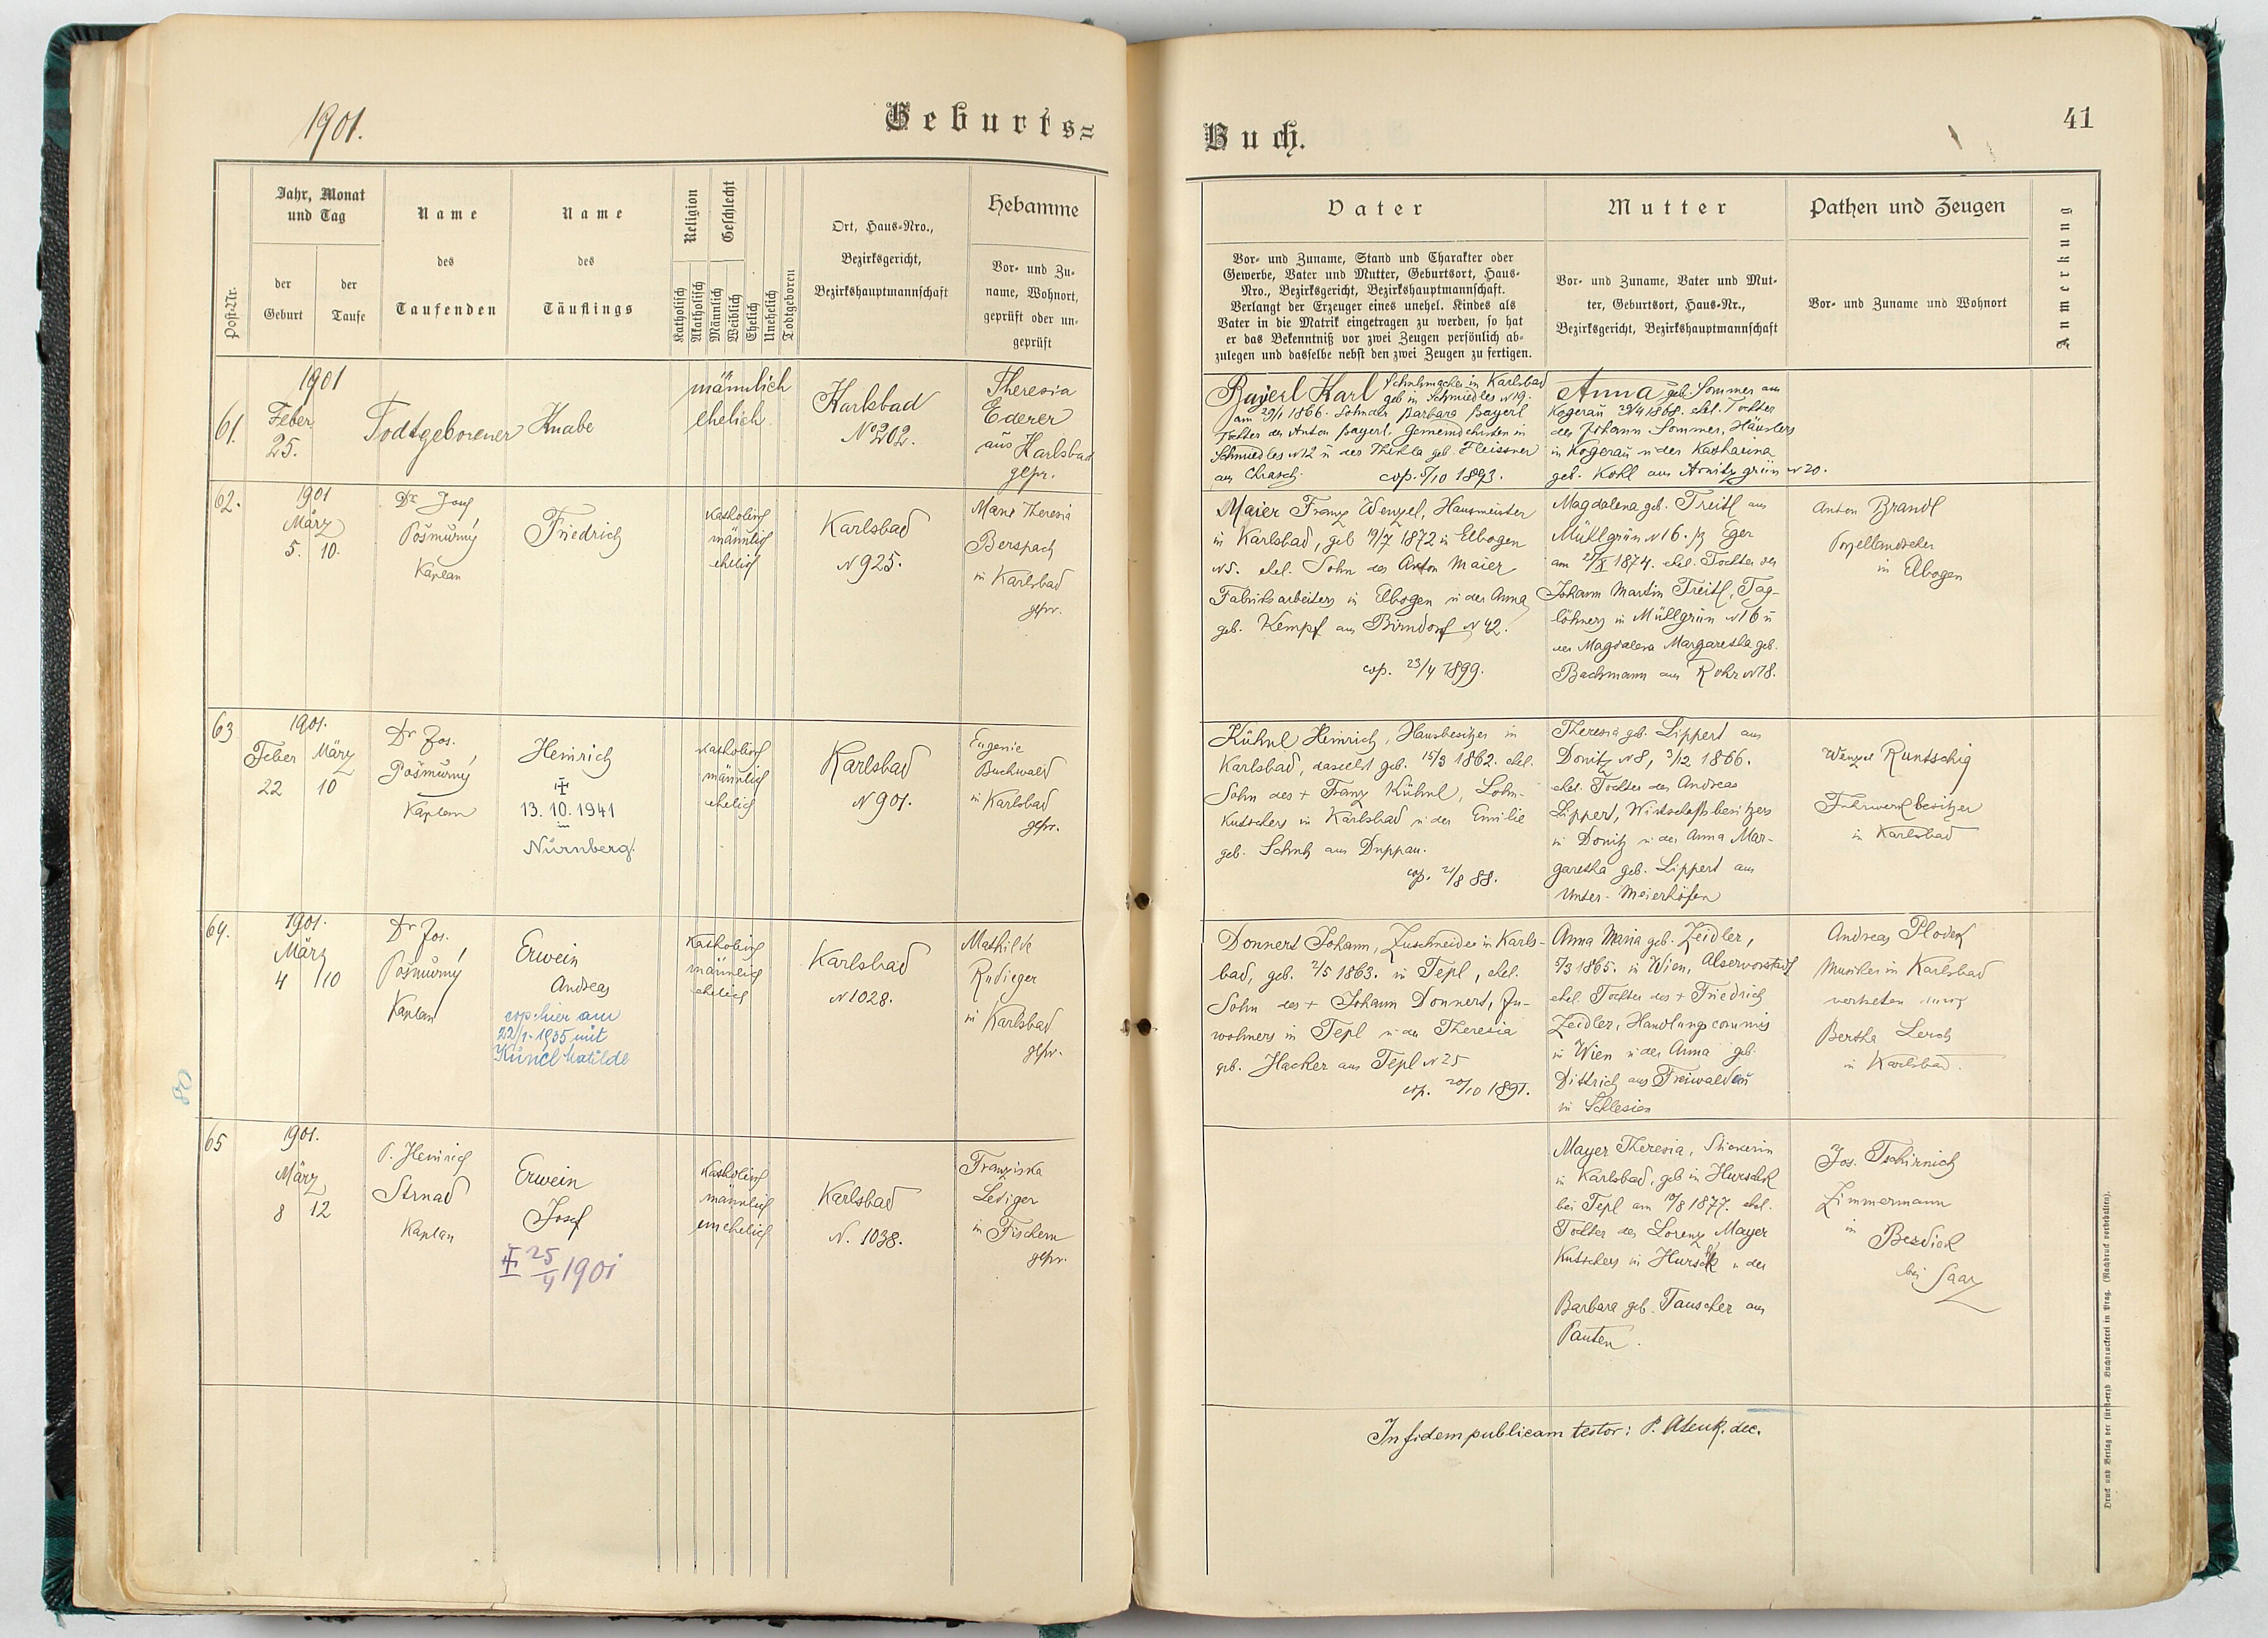 1901.
Geburts=
Post-Nr.
Jahr, Monat
und Tag
der
Geburt
der
Taufe
Name
des
Taufenden
Name
des
Täuflings
Religion
Katholisch
Akatholisch
Geschlecht
Männlich
Weiblich
Ehelich
Unehelich
Todtgeboren
Ort, Haus-Nro.,
Bezirksgericht,
Bezirkshauptmannschaft
Hebamme
Vor- und Zu-
name, Wohnort,
geprüft oder un-
geprüft
61.
1901
Feber
25.
Todtgeborener Knabe
männlich
ehelich
Karlsbad
No 202.
Theresia
Ederer
aus Karlsbad
gepr.
62.
1901
März
5. 10.
Dr Josef
Pošmůrný
Kaplan
Friedrich
katholisch
männlich
ehelich
Karlsbad
N 925.
Marie Theresia
Berspach
in Karlsbad
gepr.
63
1901.
Feber März
22 10
Dr Jos.
Pošmůrný
Kaplan
Heinrich
13. 10. 1941
Nürnberg.
katholisch
männlich
ehelich
Karlsbad
N 901.
Eugenie
Buchwald
in Karlsbad
gepr.
64.
1901.
März
4 10
Dr Jos.
Pošmůrný
Kaplan
Erwein
Andreas
cop. hier am
22/1. 1935 mit
Künel Matilde
katholisch
männlich
ehelich
Karlsbad
N 1028.
Mathilde
Rudieger
in Karlsbad
gepr.
80
65
1901.
März
8 12
P. Heinrich
Strnad
Kaplan
Erwein
Josef
25/4 1901
katholisch
männlich
unehelich
Karlsbad
N. 1038.
Franziska
Lediger
in Fischern
gepr.
Buch.
41
Vater
Vor- und Zuname, Stand und Charakter oder
Gewerbe, Vater und Mutter, Geburtsort, Haus-
Nro., Bezirksgericht, Bezirkshauptmannschaft.
Verlangt der Erzeuger eines unehel. Kindes als
Vater in die Matrik eingetragen zu werden, so hat
er das Bekenntniß vor zwei Zeugen persönlich ab-
zulegen und dasselbe nebst den zwei Zeugen zu fertigen.
Mutter
Vor- und Zuname, Vater und Mut-
ter, Geburtsort, Haus-Nr.,
Bezirksgericht, Bezirkshauptmannschaft
Pathen und Zeugen
Vor- und Zuname und Wohnort
Anmerkung
Bayerl Karl Schuhmacher in Karlsbad
geb in Schmiedles N 19.
am 29/1 1866. Sohn der Barbara Bayerl
Tochter des Anton Bayerl, Gemeindehirten in
Schmiedles N 12 u der Thekla geb. Fleissner
aus Chrasch. cop. 5/10 1893.
Anna geb. Sommer aus
Kogerau 29/4 1868. ehl. Tochter
des Johann Sommer, Häuslers
in Kogerau u der Katharina
geb. Kohl aus Arnitzgrün N 20.
Maier Franz Wenzel, Hausmeister
in Karlsbad, geb 19/7 1872 in Elbogen
N 5. ehel. Sohn des Anton Maier
Fabriksarbeiters in Elbogen u der Anna
geb. Kempf aus Birndorf N 42.
cop. 23/4 1899.
Magdalena geb. Treitl aus
Müllgrün N 16. Eger
am 1874. ehel. Tochter des
Johann Martin Treitl, Tag-
löhners in Müllgrün N 16 u
der Magdalena Margaretha geb.
Bachmann aus Rohr N 78.
Anton Brandl
Porzellandreher
in Elbogen
Kühnl Heinrich, Hausbesitzer in
Karlsbad, daselbst geb. 15/3 1862. ehel.
Sohn des + Franz Kühnl, Lohn-
kutschers in Karlsbad u der Emilie
geb. Schutz aus Duppau.
cop. 21/8 88.
Theresia geb. Lippert aus
Donitz N 8, 3/12 1866.
ehel. Tochter des Andreas
Lippert, Wirtschaftsbesitzers
in Donitz u der Anna Mar-
garetha geb. Lippert aus
Unter-Meierhöfen
Wenzel Runtschig
Fuhrwerkbesitzer
in Karlsbad
Donnert Johann, Zuschneider in Karls-
bad, geb. 2/5 1863. in Tepl, ehel.
Sohn des + Johann Donnert, In-
wohners in Tepl u der Theresia
geb. Hacker aus Tepl N 25
cop. 20/10 1891.
Anna Maria geb. Zeidler,
5/3 1865. in Wien, Alservorstadt
ehel. Tochter des + Friedrich
Zeidler, Handlungscommis
in Wien u der Anna geb.
Dittrich aus Freiwaldau
in Schlesien
Andreas Ploderl
Musiker in Karlsbad
vertreten durch
Bertha Lerch
in Karlsbad.
Mayer Theresia, Stickerin
in Karlsbad, geb in Hurschk
bei Tepl am 19/8 1877. ehel.
Tochter des Lorenz Mayer
Kutschers in Hurschk u der
Barbara geb. Tauscher aus
Pauten.
Jos. Tschirnich
Zimmermann
in
Bezdiek
bei Saaz
In fidem publicam testor: P. Atenk. dec.
Druck und Verlag der fürst-erzb Buchdruckerei in Prag. (Nachdruck vorbehalten).